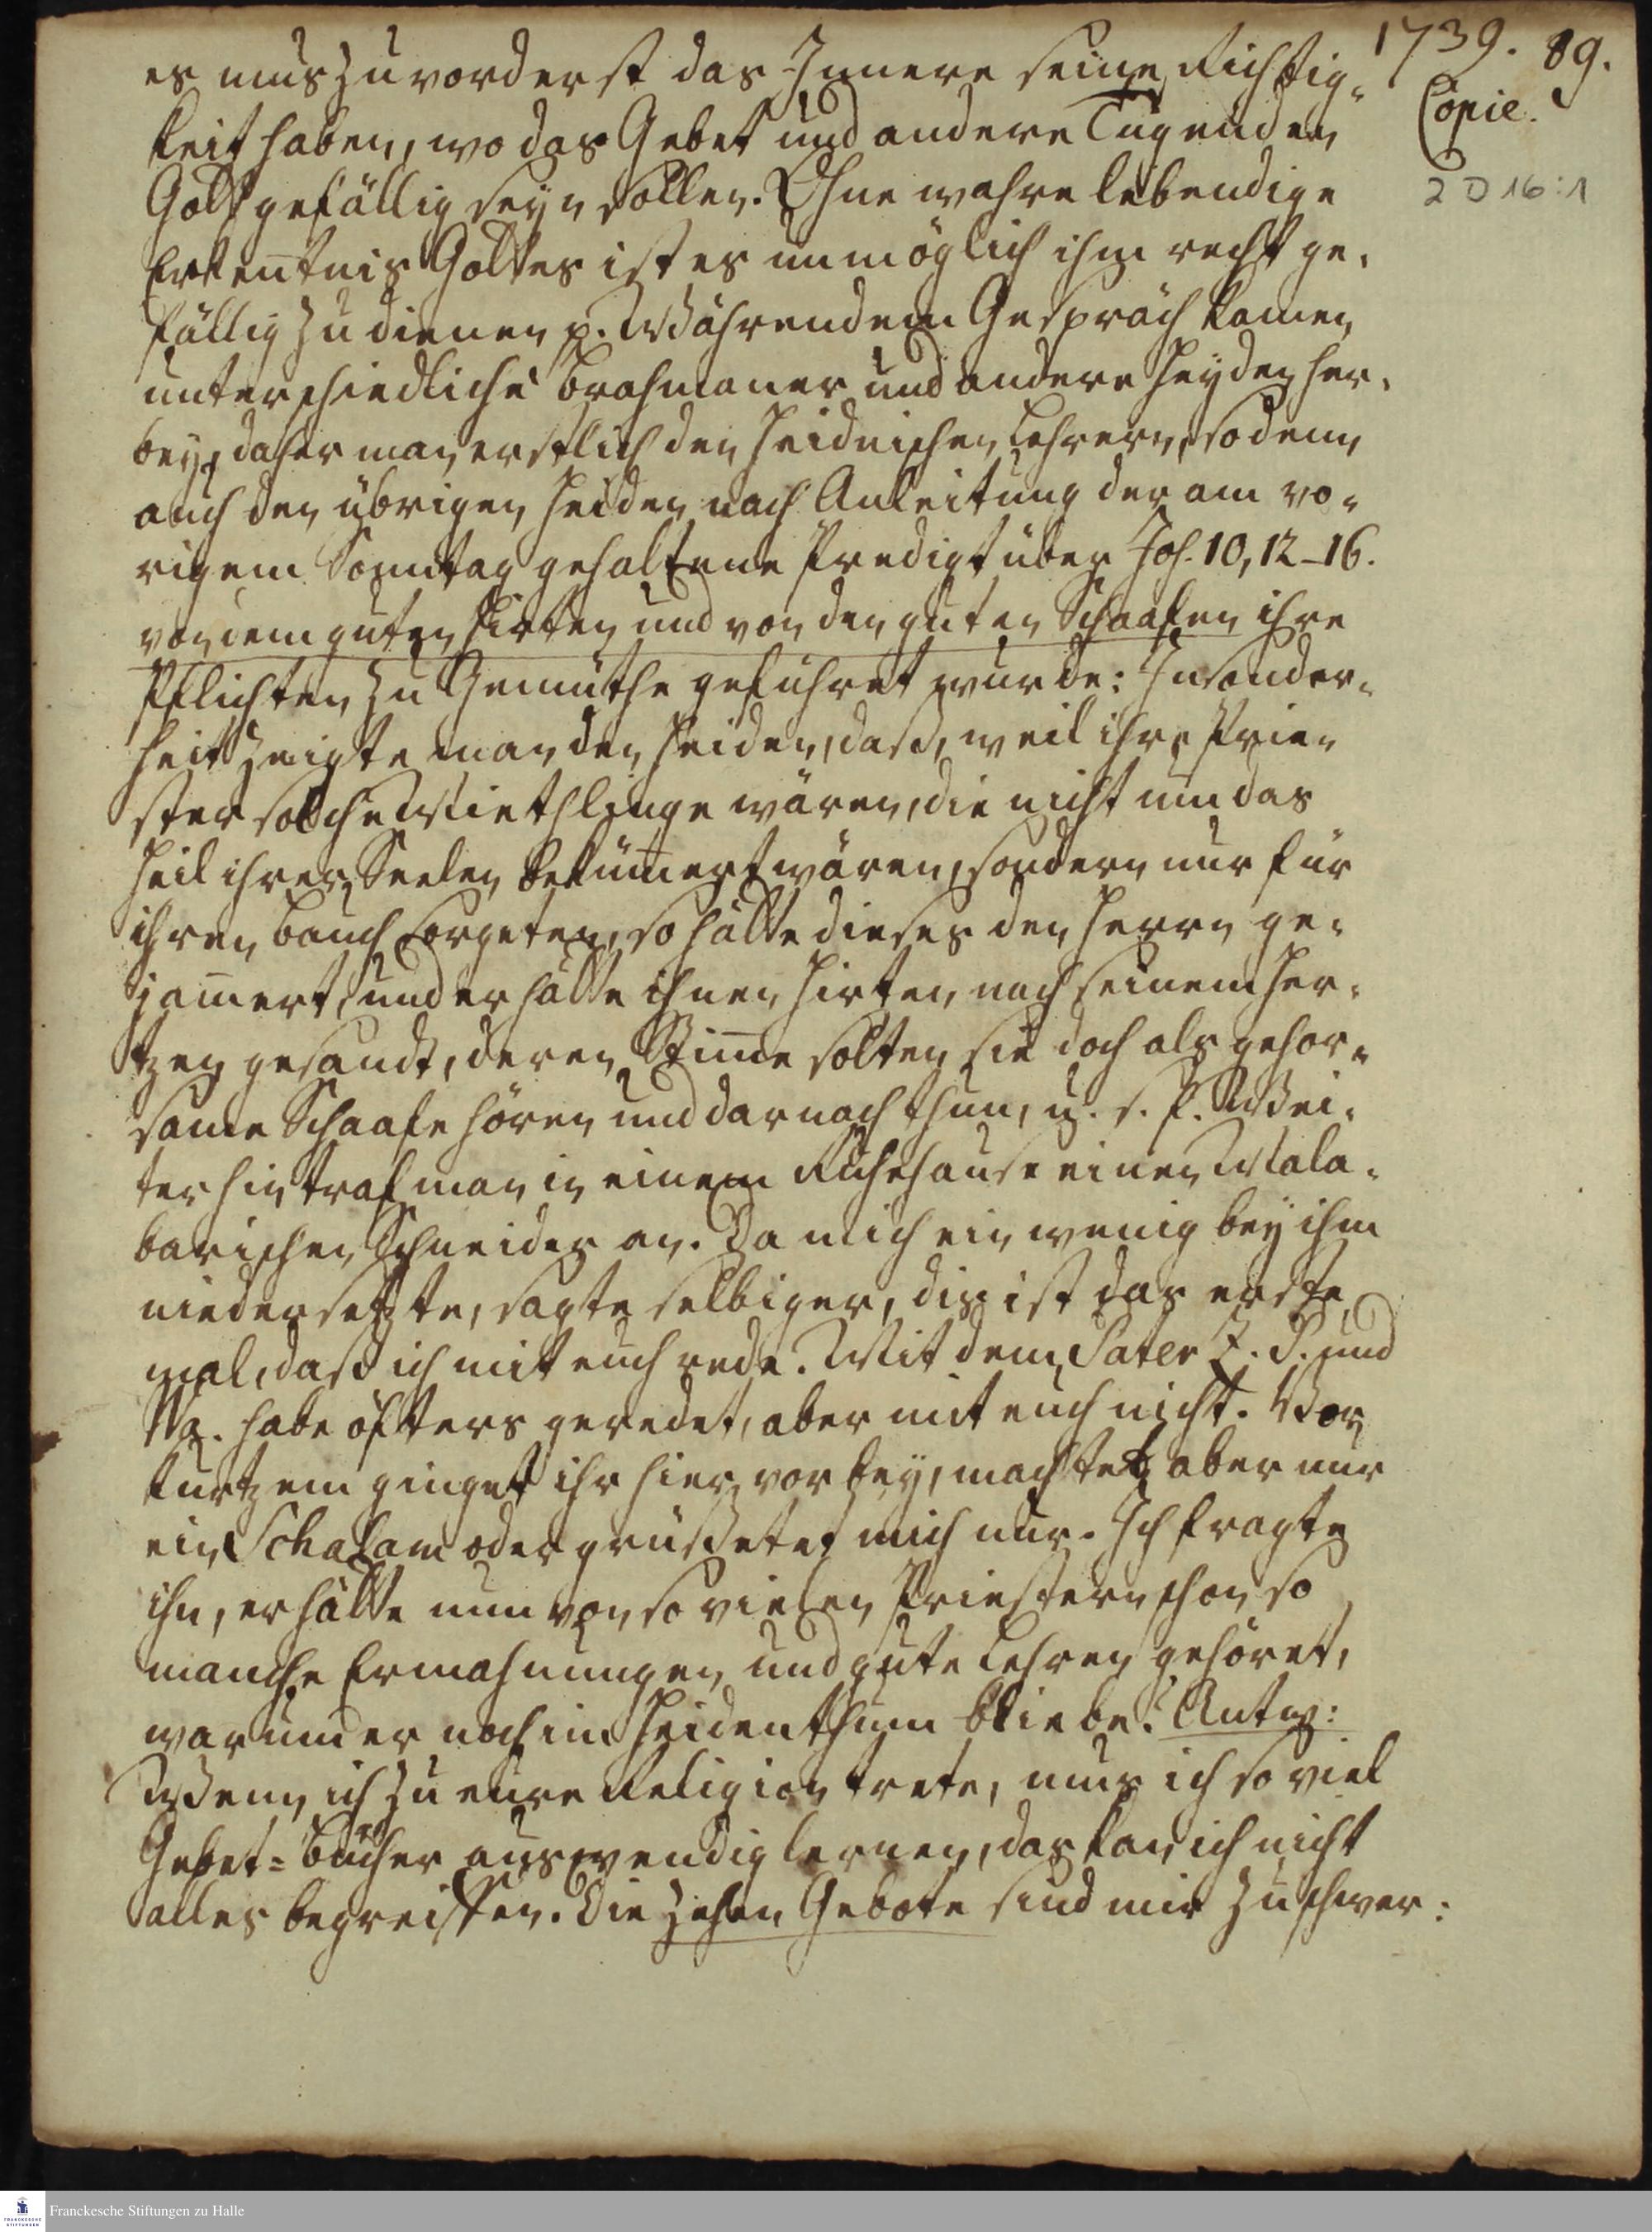 1739. 89.
Copie.
2 D 16:1
es mus zuvorderst das Innere seine Richtig-
keit haben, wo das Gebet und andere Tugenden
Gott gefällig seyn sollen. Ohne wahre lebendige
Erkentnis Gottes ist es unmöglich ihm recht ge-
fällig zu dienen p. Währendem Gespräch kamen
unterschiedliche Brahmaner und andere Heyden her-
bey, daher man erstlich den heidnischen Lehrern, sodenn
auch den übrigen Heiden nach Anleitung der am vo-
rigem Sonntag gehaltene Predigt über Joh. 10, 12–16.
von dem guten Hirten und von den guten Schaafen ihre
Pflichten zu Gemüthe geführet wurde: Insonder-
heit zeigte man den Heiden, daß, weil ihre Prie-
ster solche Miethlinge wären, die nicht um das
Heil ihrer Seelen bekümert wären, sondern nur für
ihren Bauch sorgeten, so hätte dieses den Herrn ge-
jamert, und er hätte ihnen Hirten nach seinem Her-
tzen gesandt, deren Stime solten sie doch als gehor-
same Schaafe hören und darnach thun, u. s. f. Wei-
ter hin traf man in einem Ruhehause einen Mala-
barischen Schneider an. Da mich ein wenig bey ihm
niedersetzte, sagte selbiger, dis ist das erste
mal, daß ich mit euch rede. Mit dem Pater Z. P. und
W. habe öffters geredet, aber mit euch nicht. Vor
kurtzem ginget ihr hier vorbey, machtet aber nur
ein Schalam oder grüßetet mich nur. Ich fragte
ihn, er hätte nun von so vielen Priestern schon so
manche Ermahnungen und gute Lehren gehöret,
warum er noch im Heidenthum bliebe? Antw:
Wenn ich zu eure Religion trete, mus ich so viel
Gebet-Bücher auswendig lernen, das kan ich nicht
alles begreiffen. Die zehen Gebote sind mir zu schwer:
Franckesche Stiftungen zu Halle